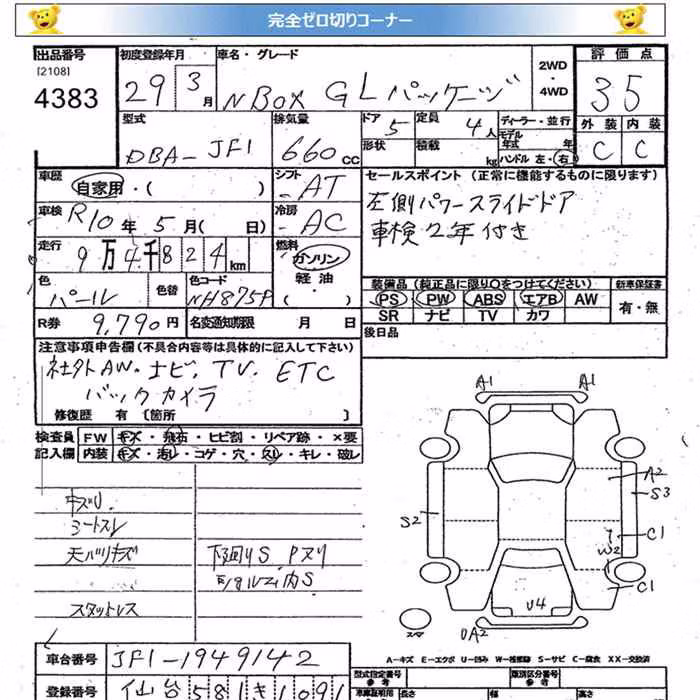 完全ゼロ切りコーナー
出品番号 初度登録年月 車名・グレード 評価点
[2108] 2WD
4383 29 3月 NBOX GLパッケージ ・4WD 35
型式 排気量 ドア 定員 ディーラー・並行 外装 内装
DBA-JF1 660CC 5 4人 モデル年式 年 C C
形状 積載 kg ハンドル 左・右
車歴 シフト セールスポイント (正常に機能するものに限ります)
自家用・( ) AT 左側パワースライドドア
車検 R10年5月( 日) 冷房 AC 車検2年付き
走行 9万4千824km 燃料 ガソリン
軽油
・( )
色 色替 色コード 装備品 (純正品に限り○をつけてください) 新車保証書
パール NH875P PS PW ABS エアB AW 有・無
R券 9,790円 名変通知期限 月 日 SR ナビ TV カワ
後日品
注意事項申告欄 (不具合内容等は具体的に記入して下さい)
社外AW.ナビ.TV.ETC
バックカメラ
修復歴 有 [箇所 ]
検査員 FW キズ・飛石・ヒビ割・リペア跡・×要
記入欄 内装 キズ・汚レ・コゲ・穴・スレ・キレ・破レ
A1 A1
A2
S3
S2
C1
W2
C1
U4
UA2
スマ
キズU.
シートスレ
天バリキズ 下廻りS.Pヌリ
スタットレス
A-キズ E-エクボ U-凹み W-補修跡 S-サビ C-腐食 XX-交換済
車台番号 JF1-1949142
登録番号 仙台581き1091
型式指定番号 類別区分番号
参考 参考
長さ 幅 高さ